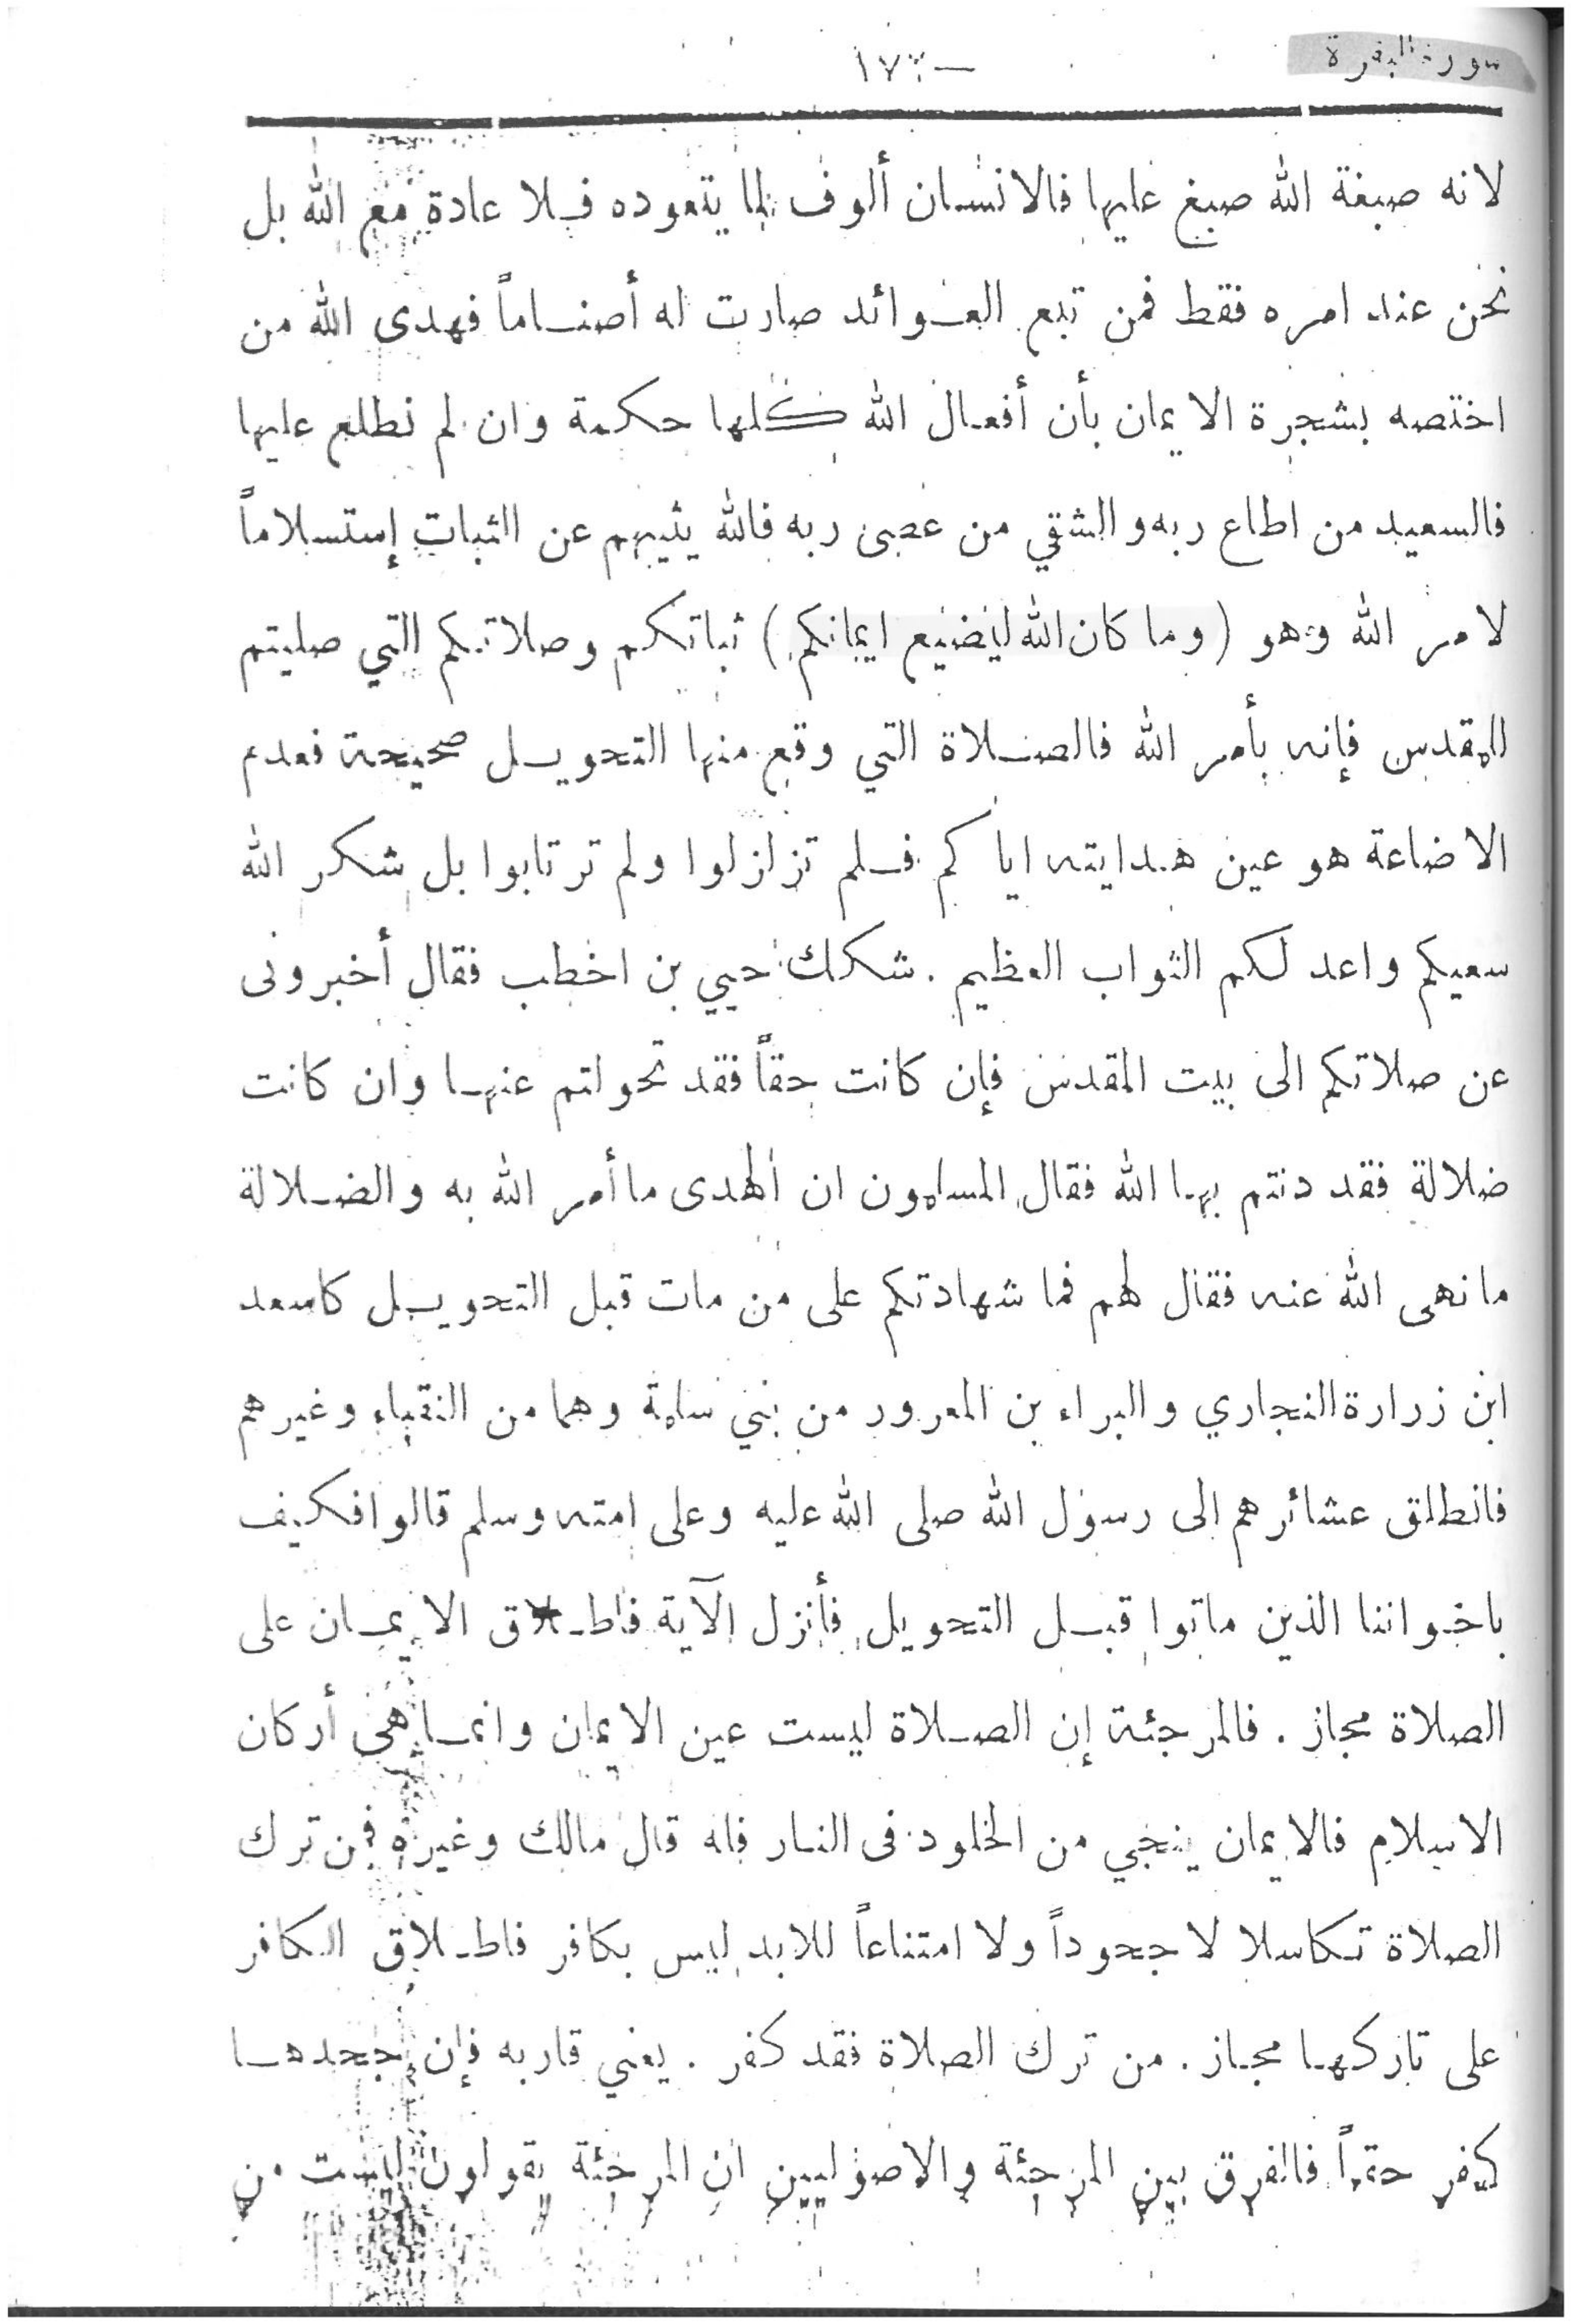 سورة البقرة
لانه صبغة الله صبغ عليها فالانسان ألوف لما يتعوده فلا عادة مع الله بل
نحن عند امره فقط فمن تبع العوائد صارت له أصناماً فهدى الله من
اختصه بشجرة الايمان بأن أفعال الله كلها حكمة وان لم نطلع عليها
فالسعيد من اطاع ربه والشقي من عصى ربه فالله يثيبهم عن الثبات إستسلاماً
لامر الله وهو (وما كان الله ليضيع ايمانكم) ثباتكم وصلاتكم التي صليتم
للمقدس فإنه بأمر الله فالصلاة التي وقع منها التحويل صحيحة فعدم
الاضاعة هو عين هدايته اياكم فلم تزلزلوا ولم ترتابوا بل شكر الله
سعيكم واعد لكم الثواب العظيم . شكك حيي بن اخطب فقال أخبرونى
عن صلاتكم الى بيت المقدس فإن كانت حقاً فقد تحولتم عنها وان كانت
ضلالة فقد دنتم بها الله فقال المسلمون ان الهدى ما أمر الله به والضلالة
ما نهى الله عنه فقال لهم فما شهادتكم على من مات قبل التحويل كاسعد
ابن زرارة النجاري والبراء بن المعرور من بني سلمة وهما من النقباء وغيرهم
فانطلق عشائرهم الى رسول الله صلى الله عليه وعلى امته وسلم قالوا فكيف
باخواننا الذين ماتوا قبل التحويل فأنزل الآية فاطلاق الايمان على
الصلاة مجاز . فالمرجئة إن الصلاة ليست عين الايمان وانما هى أركان
الاسلام فالايمان ينجي من الخلود فى النار فله قال مالك وغيره فمن ترك
الصلاة تكاسلا لا جحوداً ولا امتناعاً للابد ليس بكافر فاطلاق الكافر
على تاركها مجاز . من ترك الصلاة فقد كفر . يعني قاربه فإن جحدها
كفر حتماً فالفرق بين المرجئة والاصوليين ان المرجئة يقولون ليست من